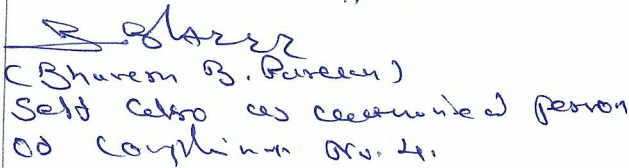 (Bhavesh B. Pareek)
Self also as authorised person
of complainant No. 4.